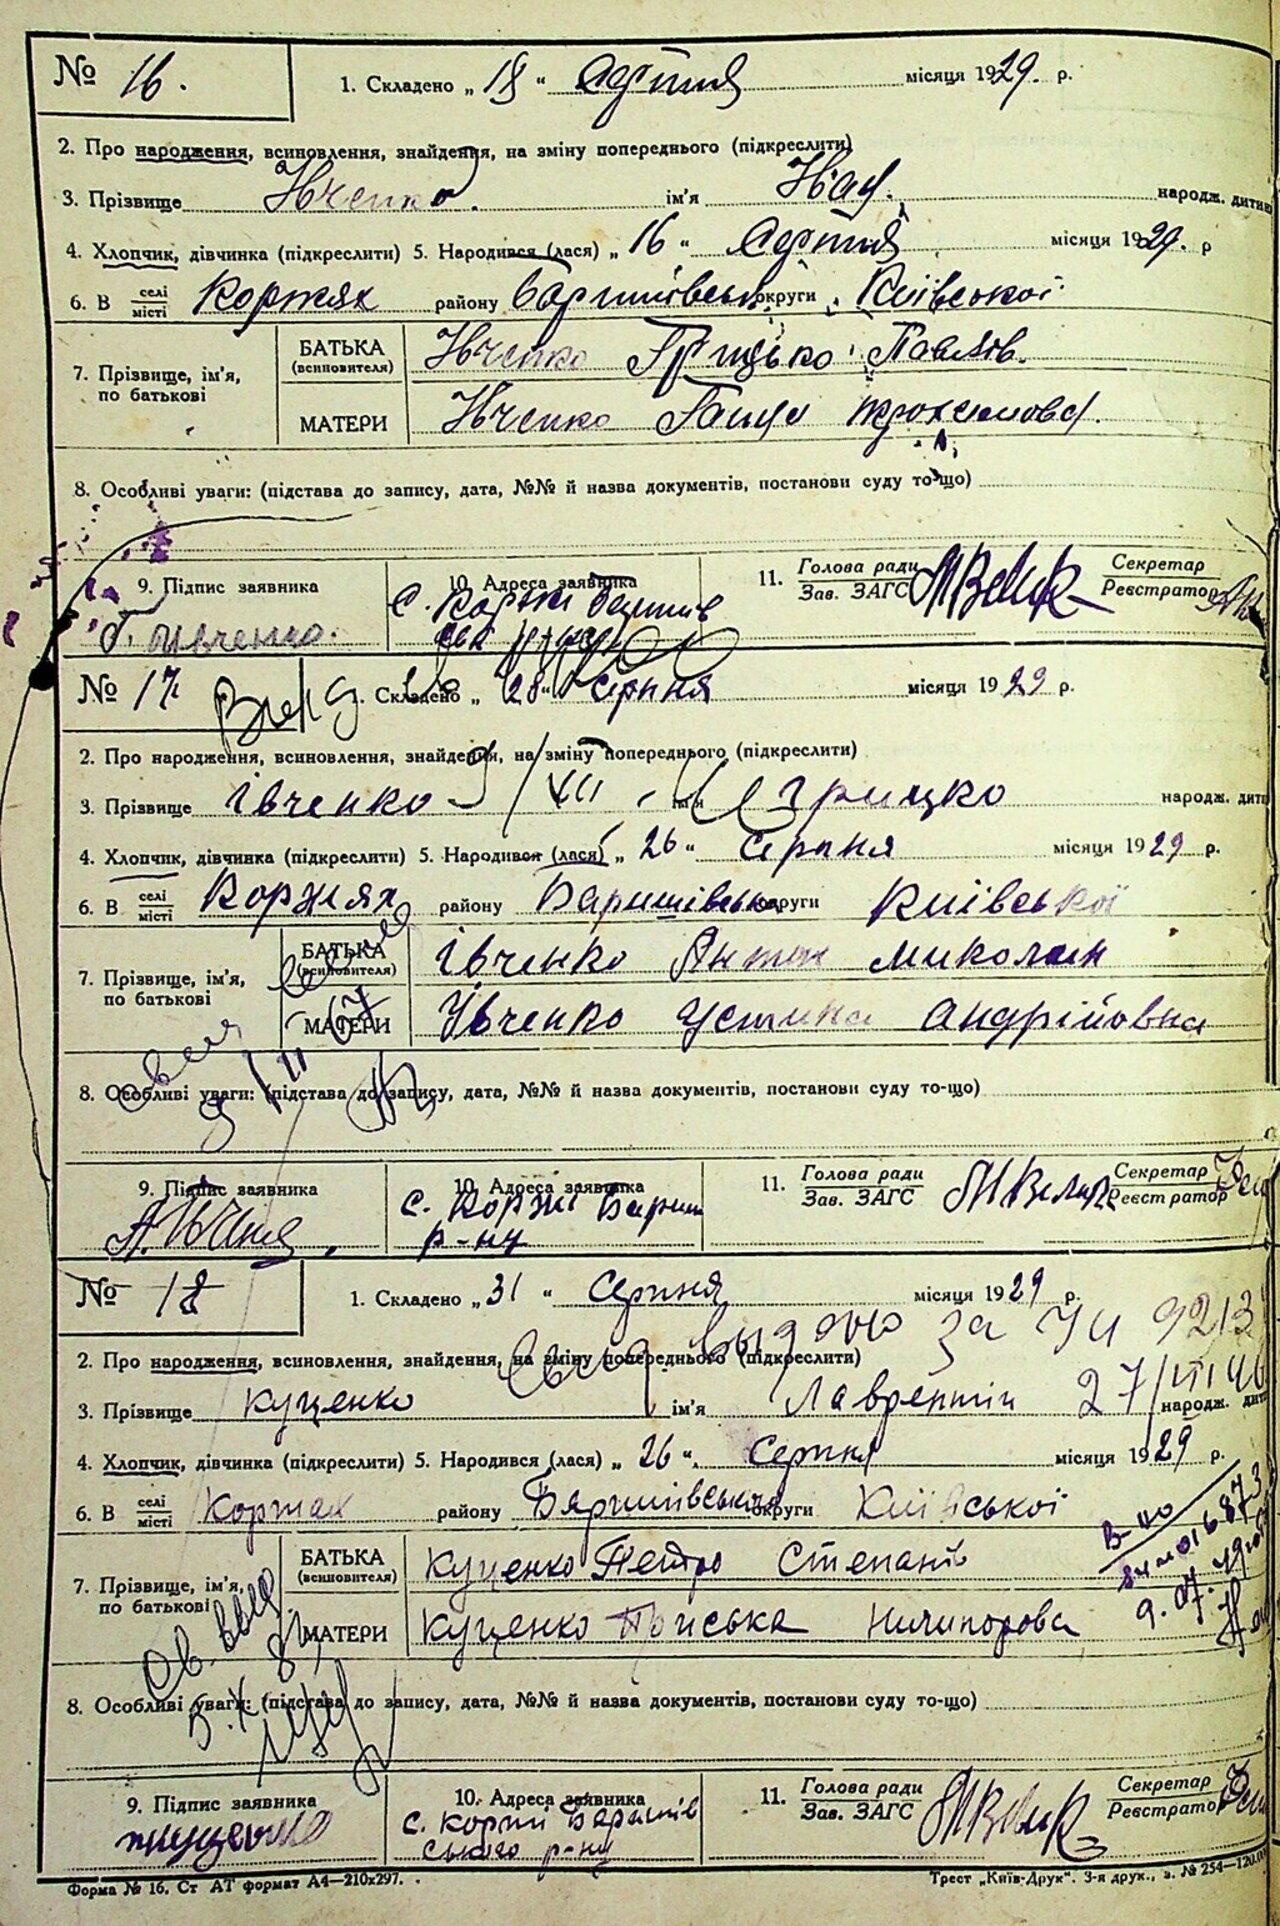 № 16. 1. Складено „ 18 “ Серпня місяця 1929. р.
2. Про народження, всиновлення, знайдення, на зміну попереднього (підкреслити)
3. Прізвище Ивченко. ім'я Ив народж. дитини
4. Хлопчик, дівчинка (підкреслити) 5. Народився (лася) „ 16 “ Серпня місяця 1929. р
6. В селі/місті Коржях району Баришівськ округи Київської
7. Прізвище, ім'я, по батькові
БАТЬКА (всиновителя) Ивченко Грицько Павлов.
МАТЕРИ Ивченко Ганна Трохимова.
8. Особливі уваги: (підстава до запису, дата, №№ й назва документів, постанови суду то-що)
9. Підпис заявника 10. Адреса заявника 11. Голова ради/Зав. ЗАГС Секретар/Реєстратор
Г. Ивченко. с. Коржі
№ 17 1. Складено „ 28 “ Серпня місяця 1929 р.
2. Про народження, всиновлення, знайдення, на зміну попереднього (підкреслити)
3. Прізвище Івченко ім'я Грицко народж. дит
4. Хлопчик, дівчинка (підкреслити) 5. Народився (лася) „ 26 “ Серпня місяця 1929 р.
6. В селі/місті Коржях району Баришівськ округи Київської
7. Прізвище, ім'я, по батькові
БАТЬКА (всиновителя) Івченко Антон Миколаїв
МАТЕРИ Івченко Устина Андрійовна
8. Особливі уваги: (підстава до запису, дата, №№ й назва документів, постанови суду то-що)
9. Підпис заявника 10. Адреса заявника 11. Голова ради/Зав. ЗАГС Секретар/Реєстратор
с. Коржі Бариш
р-ну
№ 18 1. Складено „ 31 “ Серпня місяця 1929 р.
выдано за
2. Про народження, всиновлення, знайдення, на зміну попереднього (підкреслити)
3. Прізвище Куценко ім'я Лаврентій народж. дит
4. Хлопчик, дівчинка (підкреслити) 5. Народився (лася) „ 26 “ Серпня місяця 1929 р.
6. В селі/місті Коржах району Баришівського округи Київської
7. Прізвище, ім'я, по батькові
БАТЬКА (всиновителя) Куценко Петро Степанів
МАТЕРИ Куценко Пріська Ничипорова
8. Особливі уваги: (підстава до запису, дата, №№ й назва документів, постанови суду то-що)
9. Підпис заявника 10. Адреса заявника 11. Голова ради/Зав. ЗАГС Секретар/Реєстратор
с. Коржі Баришів
ського р-ну
Форма № 16. Ст АТ формат А4—210х297. Трест „Київ-Друк“. 3-я друк., з. № 254—120.0